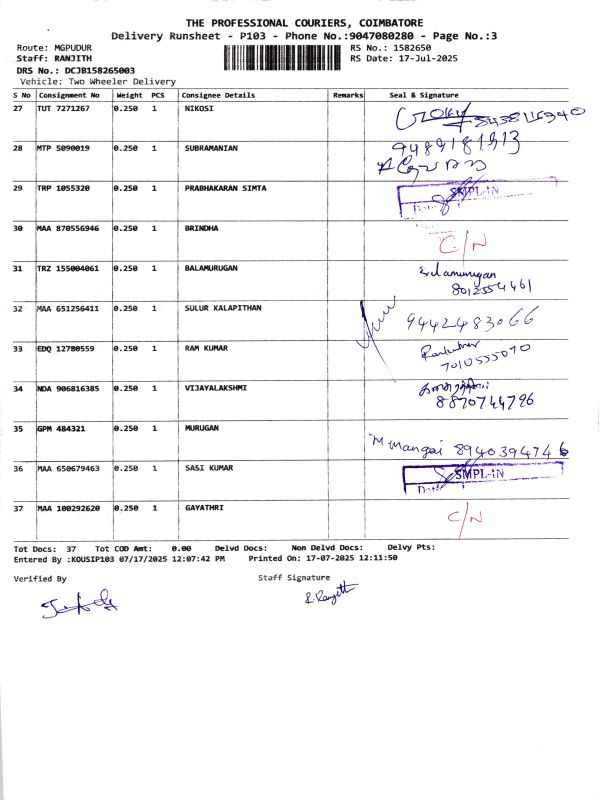 THE PROFESSIONAL COURIERS, COIMBATORE
Delivery Runsheet - P103 - Phone No.:9047080280 - Page No.:3
Route: MGPUDUR RS No.: 1582650
Staff: RANJITH RS Date: 17-Jul-2025
DRS No.: DCJB158265003
Vehicle: Two Wheeler Delivery
S No Consignment No Weight PCS Consignee Details Remarks Seal & Signature
27 TUT 7271267 0.250 1 NIKOSI
28 MTP 5090019 0.250 1 SUBRAMANIAN 9489181913
29 TRP 1055320 0.250 1 PRABHAKARAN SIMTA SMPL-IN
Date
30 MAA 870556946 0.250 1 BRINDHA C/N
31 TRZ 155004061 0.250 1 BALAMURUGAN Balamurugan
8012554461
32 MAA 651256411 0.250 1 SULUR KALAPITHAN 9442483066
33 EDQ 12780559 0.250 1 RAM KUMAR Ramkumar
7010555070
34 NDA 906816385 0.250 1 VIJAYALAKSHMI
8870744796
35 GPM 484321 0.250 1 MURUGAN M mangai 8940394746
36 MAA 650679463 0.250 1 SASI KUMAR SMPL-IN
Date
37 MAA 100292620 0.250 1 GAYATHRI C/N
Tot Docs: 37 Tot COD Amt: 0.00 Delvd Docs: Non Delvd Docs: Delvy Pts:
Entered By :KOUSIP103 07/17/2025 12:07:42 PM Printed On: 17-07-2025 12:11:50
Verified By Staff Signature
R. Ranjith